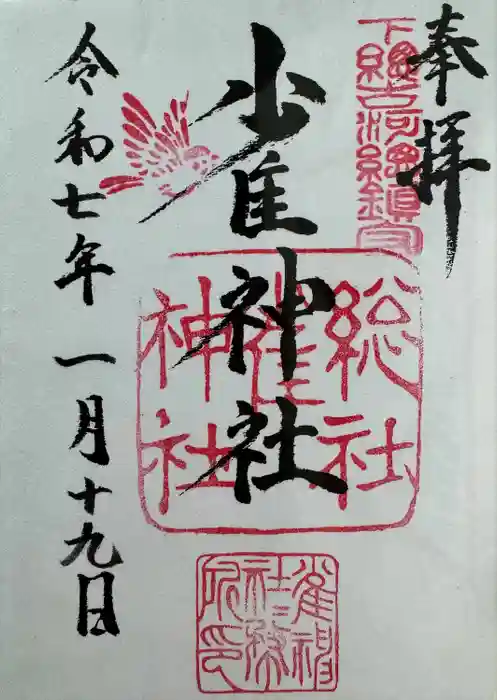 奉拝
下総古河総鎮守
雀神社
総社
雀
神社
令和七年 一月十九日
雀神
社務
印